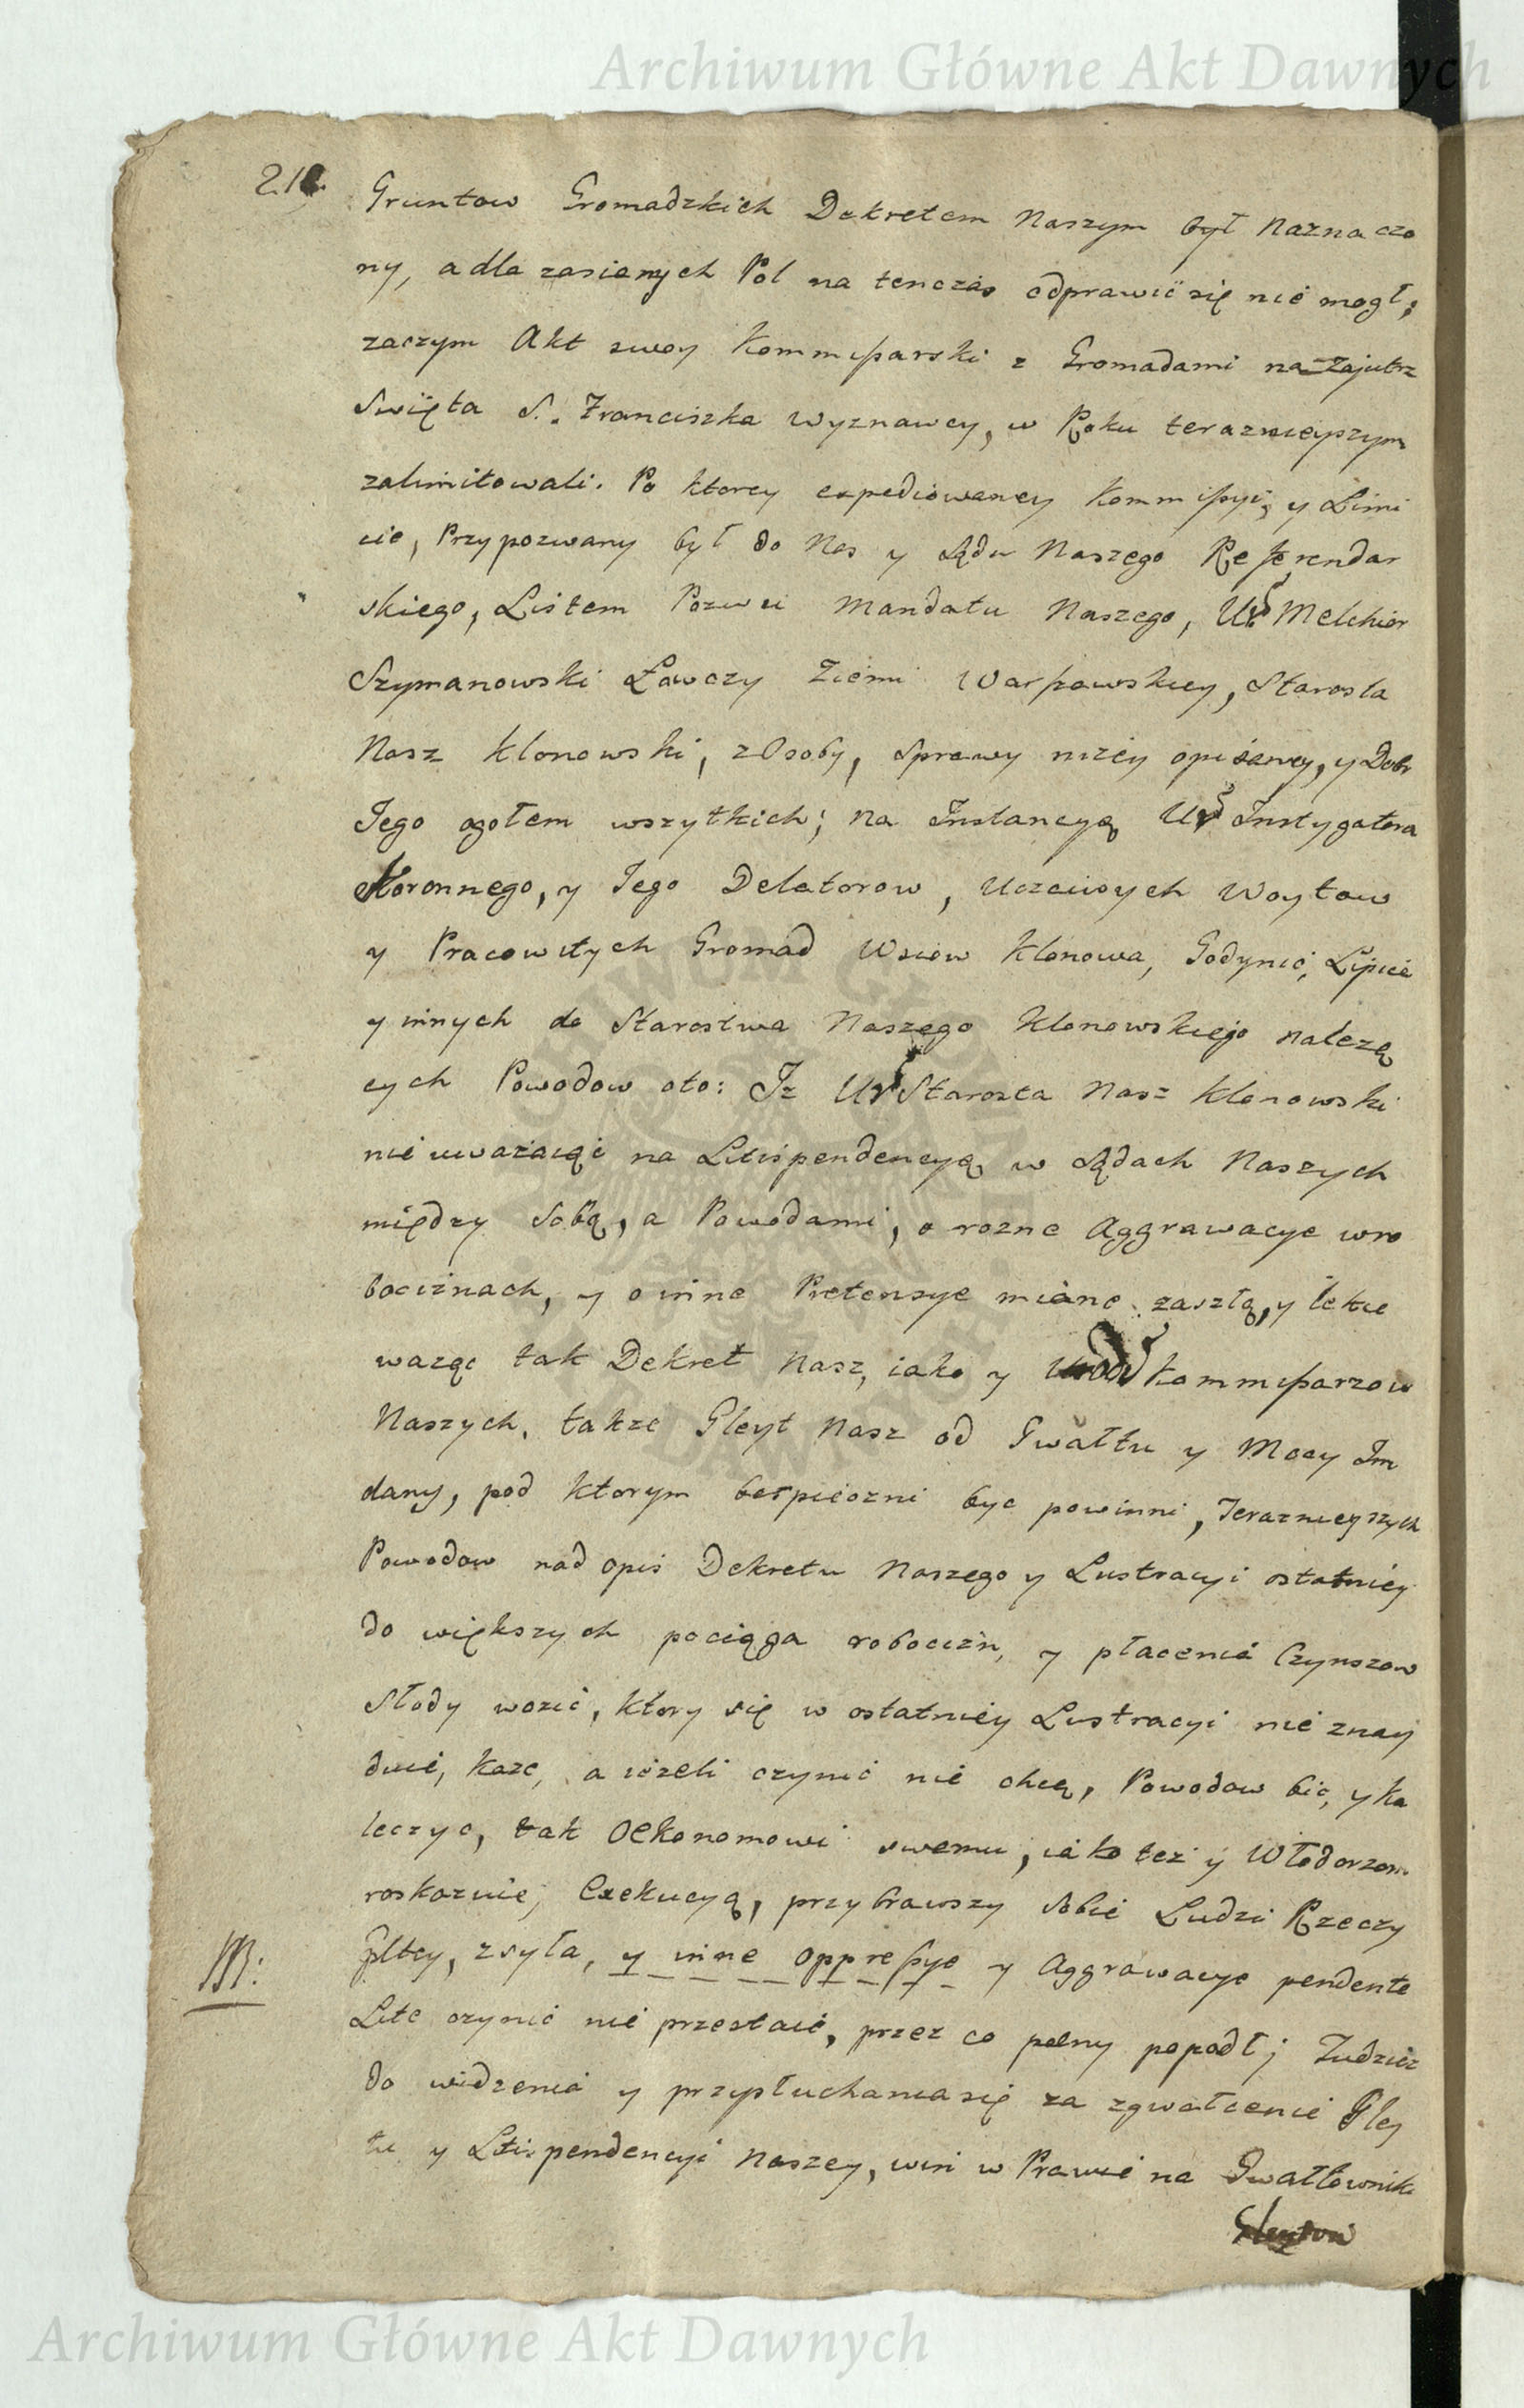 Archiwum Główne Akt Dawnych
Gruntow Gromadzkich Dekretem Naszym był naznaczo
ny, a dla zasianych Pol na tenczas odprawić się nie mogł;
zaczym Akt swoy Kommissarski z Gromadami na zajutrz
Swięta S. Franciszka Wyznawcy, w Roku teraznieyszym
zalimitowali. Po ktorey expediowaney Kommissyi, y Limi
cie, Przypozwany był do Nas y Sądu Naszego Referendar
skiego, Listem Pozwu Mandatu Naszego, Ur Melchior
Szymanowski Łowczy Ziemi Warszawskiey, Starosta
Nasz Klonowski, z Osoby, Sprawy niżey opisaney, y Dobr
Jego ogołem wszytkich; na Instancyą Ur Instygatora
Koronnego, y Jego Delatorow, Uczciwych Woytow
y Pracowitych Gromad Wsiow Klonowa, Godynic, Lipicé
y innych do Starostwa Naszego Klonowskiego należą
cych Powodow oto: Iż Ur Starosta Nasz Klonowski
nie uważaiąc na Litispendencyą w Sądach Naszych
między Sobą, a Powodami, o rozne Aggrawacye w ro
bociznach, y o inne Pretensye miane zaszłą, y lekce
ważąc tak Dekret Nasz, iako y Kommissarzow
Naszych, takze Gleyt Nasz od Gwałtu y Mocy Im
dany, pod ktorym bespieczni byc powinni, Teraznieyszych
Powodow nad opis Dekretu Naszego y Lustracyi ostatniey
do większych pociąga robocizn, y płacenia Czynszow
Słody wozić, ktory się w ostatniey Lustracyi nie znay
duie, każe, a ieżeli czynić nie chcą, Powodow bić, y ka
leczyc, tak Oekonomowi swemu, iako też y Włodarzom
roskazuie, Exekucyą, przybrawszy Sobie Ludzi Rzeczy
Pltey, zsyła, y inne oppressye y Aggrawacye pendente
NB:
Lite czynić nie przestaie, przez co peeny popadł; Tudzież
do widzenia y przysłuchania się za zgwałcenie Gley
tu y Litispendencyi Naszey, win w Prawie na Gwałtownik
Gleytow
Archiwum Główne Akt Dawnych